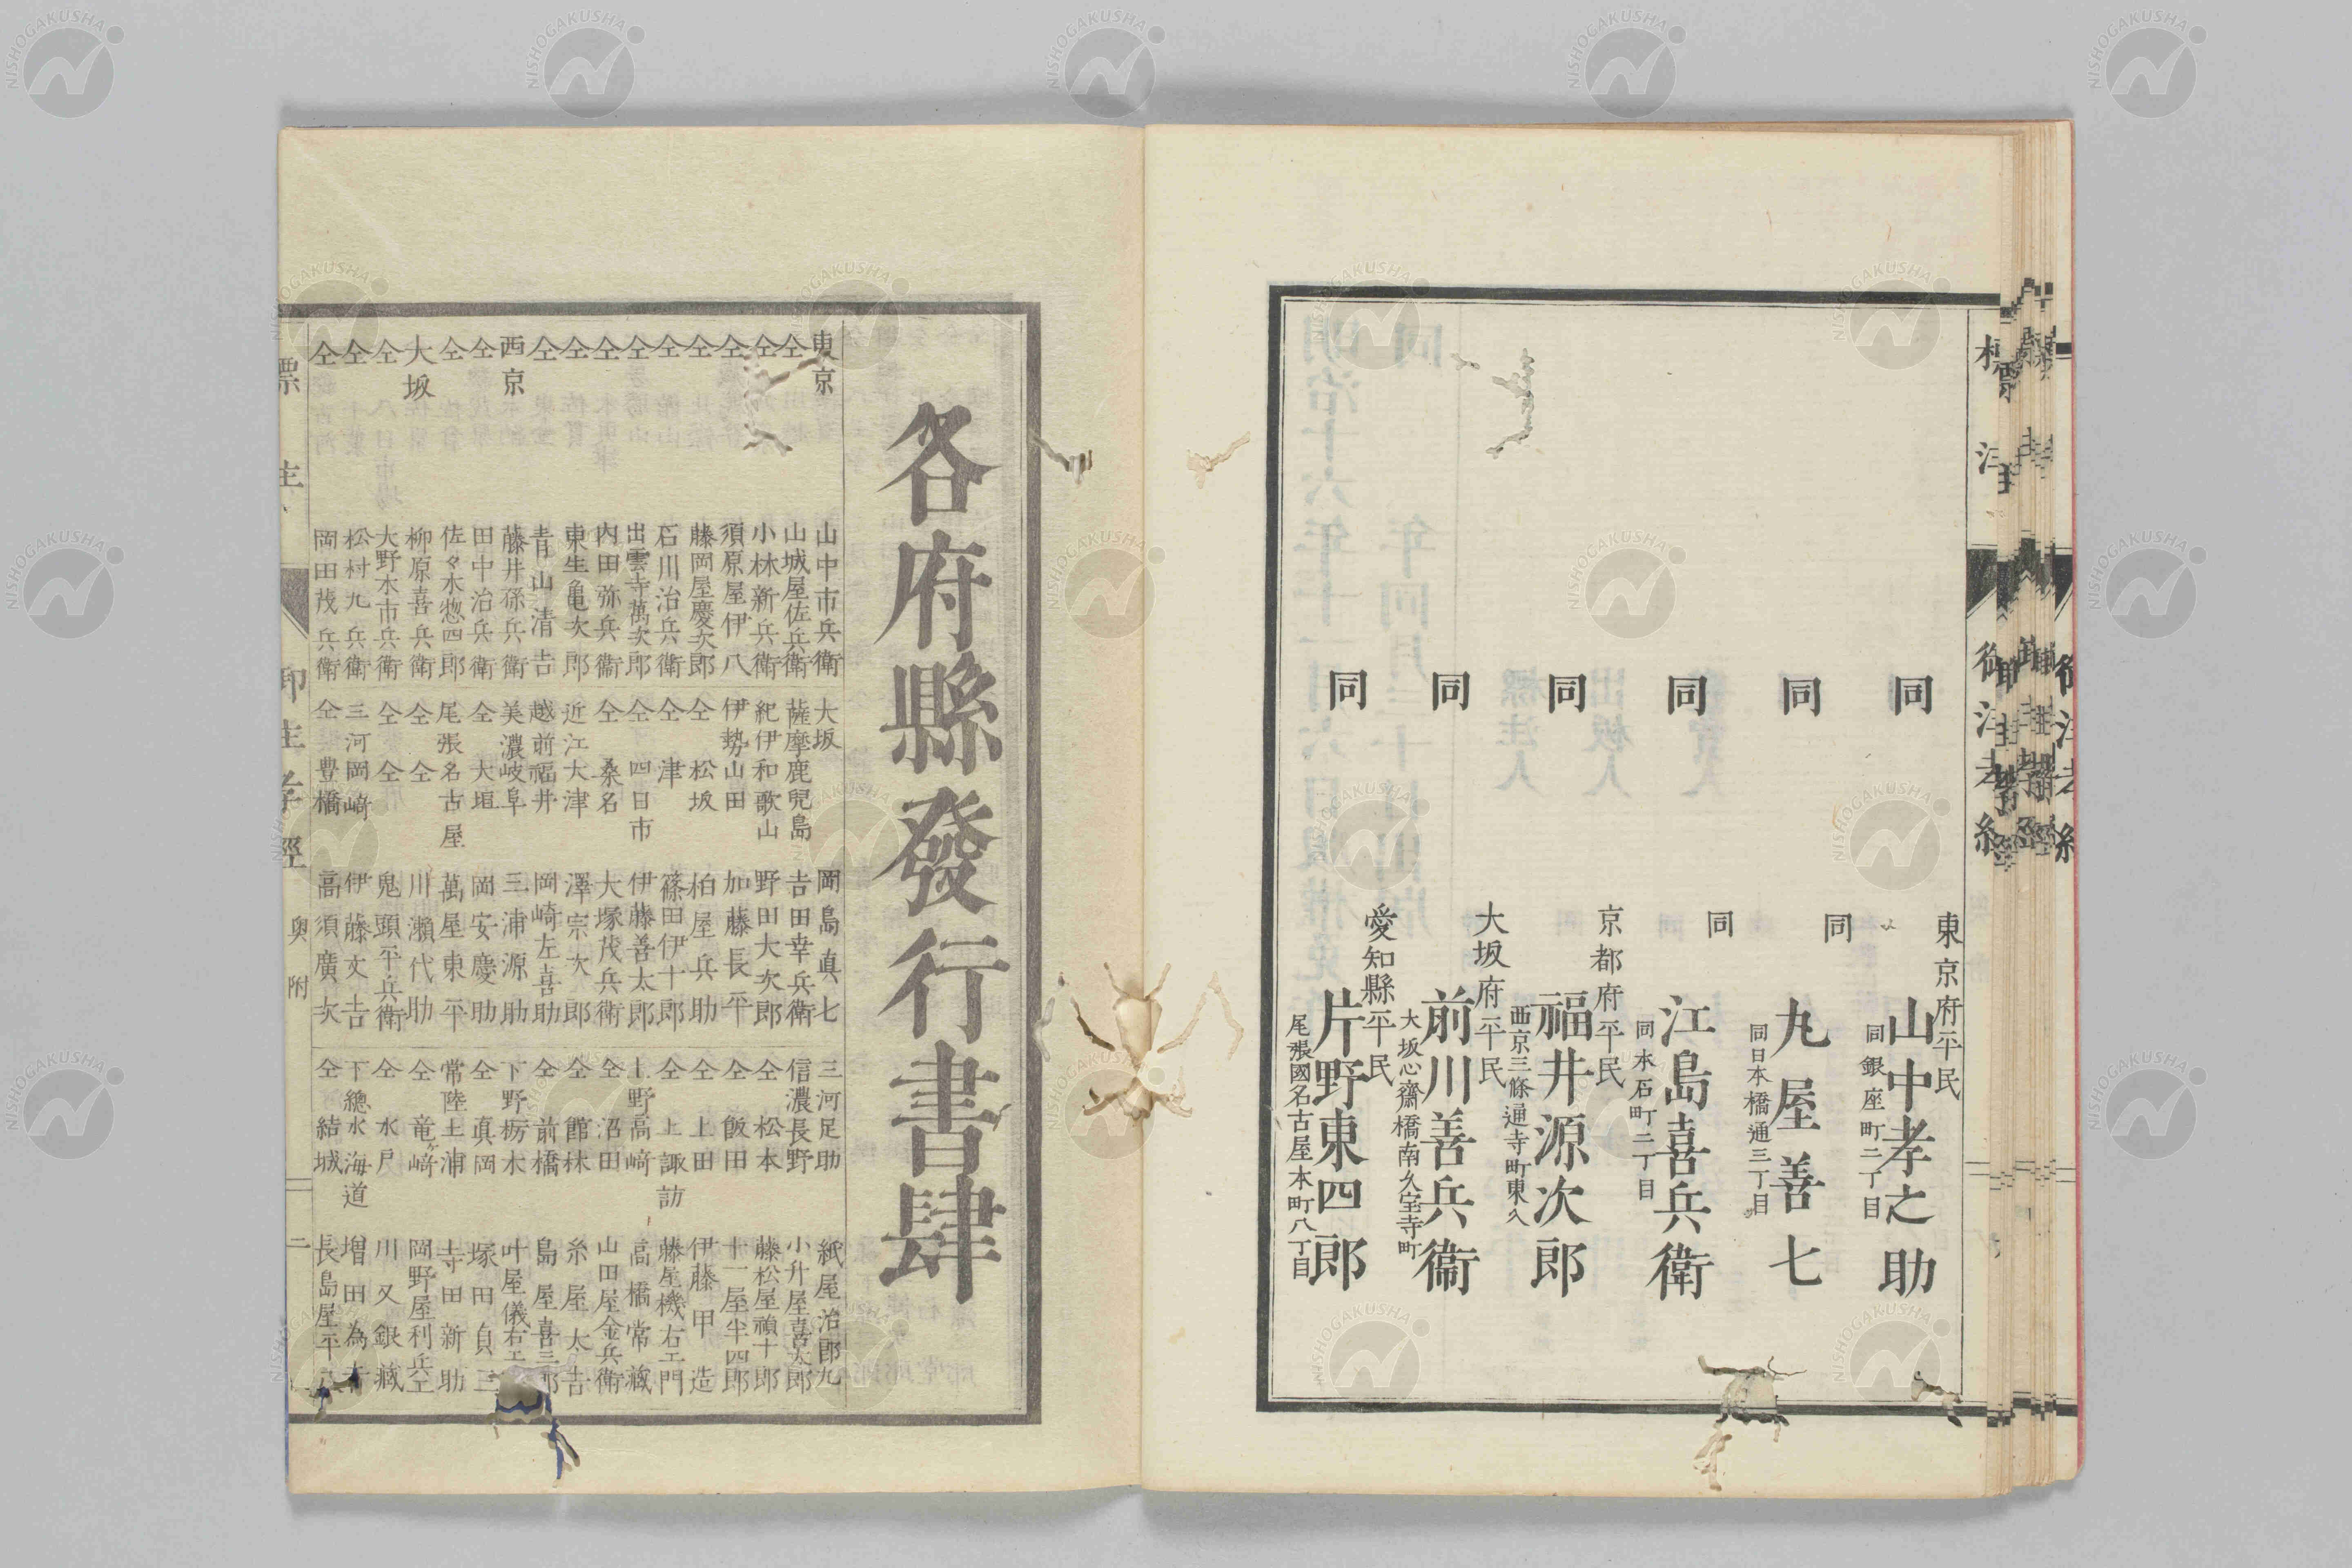 同
東京府平民
山中孝之助
同銀座町二丁目
同
同
丸屋善七
同日本橋通三丁目
同
同
江島喜兵衛
同本石町二丁目
同
京都府平民
福井源次郎
西京三條通寺町東入
同
大坂府平民
前川善兵衞
大坂心齋橋南久宝寺町
同
愛知縣平民
片野東四郎
尾張國名古屋本町八丁目
各府縣發行書肆
東京 山中市兵衛
仝 山城屋佐兵衛
仝 小林新兵衛
仝 須原屋伊八
仝 藤岡屋慶次郎
仝 石川治兵衛
仝 出雲寺萬次郎
仝 内田弥兵衞
仝 東生亀次郎
仝 青山清吉
西京 藤井孫兵衛
仝 田中治兵衛
仝 佐々木惣四郎
大坂 柳原喜兵衛
仝 大野木市兵衛
仝 松村九兵衛
仝 岡田茂兵衛
大坂 岡島真七
薩摩鹿兒島 吉田幸兵衛
紀伊和歌山 野田大次郎
伊勢山田 加藤長平
仝 松坂 柏屋兵助
仝 津 篠田伊十郎
仝 四日市 伊藤善太郎
仝 桑名 大塚茂兵衛
近江大津 澤宗次郎
越前福井 岡崎左喜助
美濃岐阜 三浦源助
仝 大垣 岡安慶助
尾張名古屋 萬屋東平
仝 仝 川瀬代助
仝 仝 鬼頭平兵衛
三河岡崎 伊藤文吉
仝 豊橋 高須廣次
三河足助 紙屋治郎九
信濃長野 小升屋喜太郎
仝 松本 藤松屋禎十郎
仝 飯田 十一屋半四郎
仝 上田 伊藤甲造
仝 上諏訪 藤屋機右エ門
上野高崎 高橋常蔵
仝 沼田 山田屋金兵衛
仝 館林 糸屋太吉
仝 前橋 島屋喜三郎
下野栃木 叶屋儀右エ
仝 真岡 塚田貞三
常陸土浦 寺田新助
仝 竜崎 岡野屋利兵エ
仝 水戸 川又銀蔵
下總水海道 増田為吉
仝 結城 長島屋平八
奥附
二